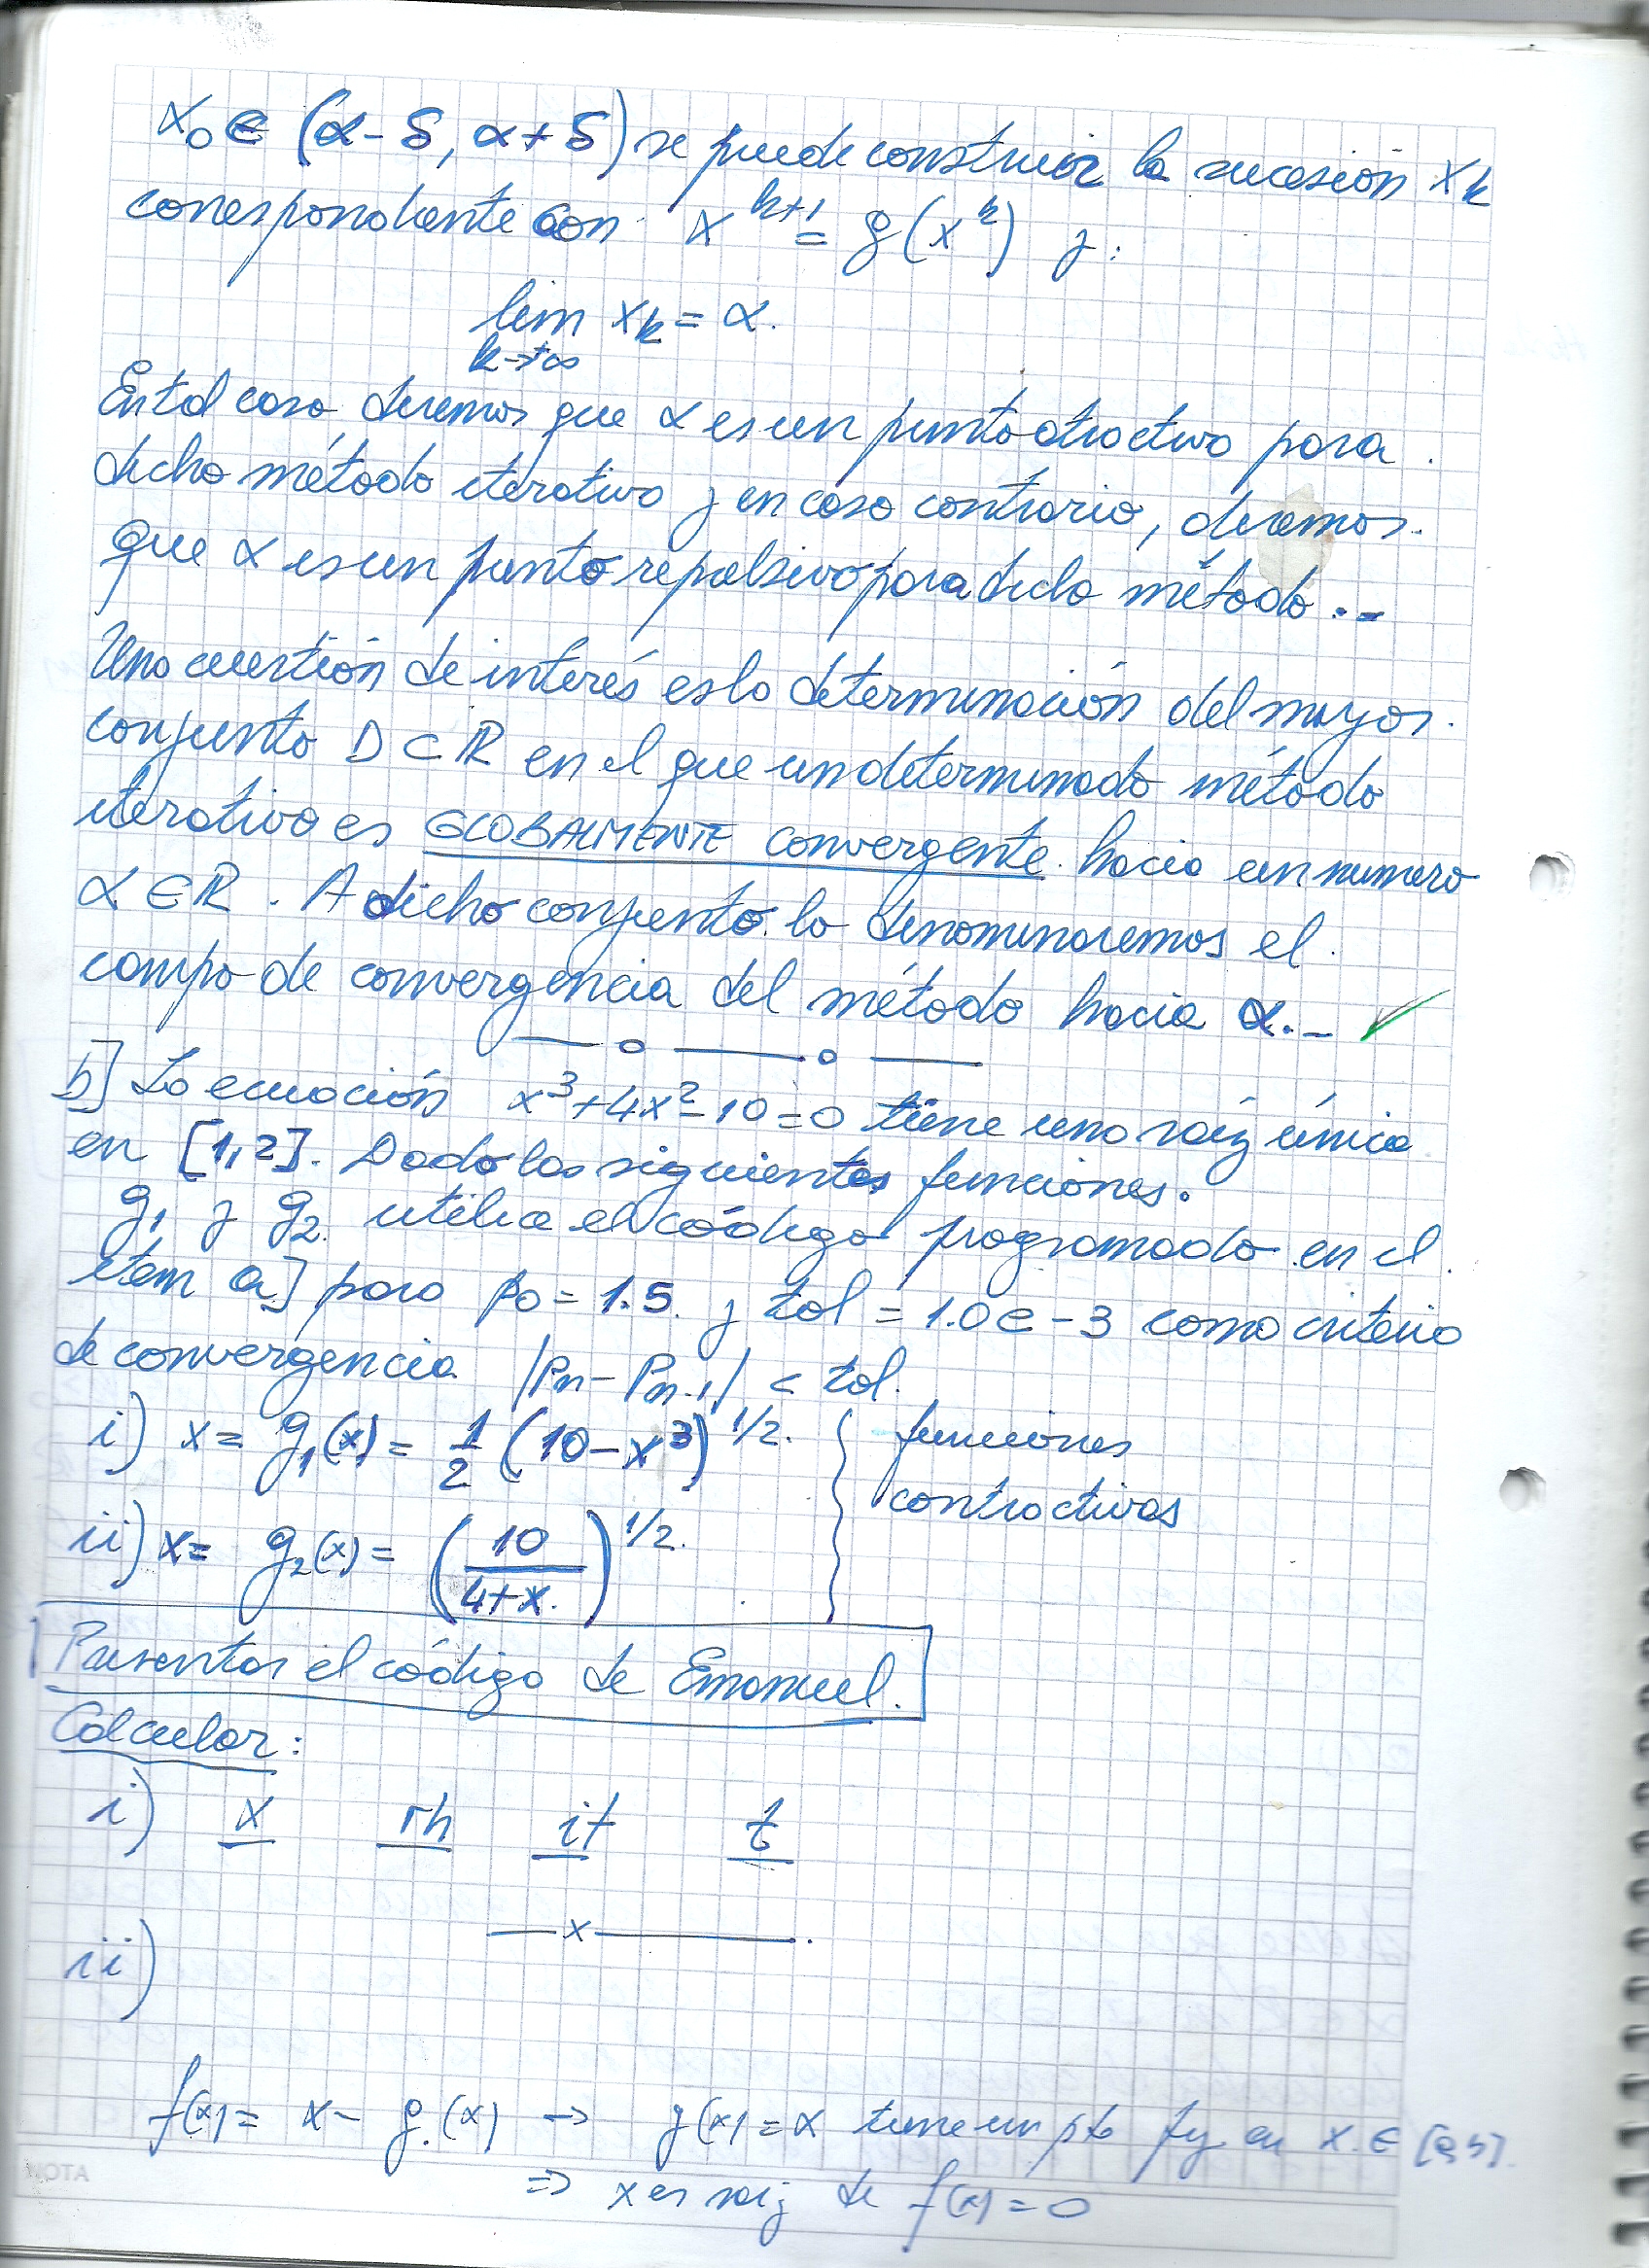 x₀ ∈ (α - δ, α + δ) se puede construir la sucesión xk
correspondiente con x^{k+1} = g(x^k) y:
lim xk = α.
k→+∞
En tal caso diremos que α es un punto atractivo para
dicho método iterativo y en caso contrario, diremos
que α es un punto repulsivo para dicho método.-
Una cuestión de interés es la determinación del mayor
conjunto D ⊂ ℝ en el que un determinado método
iterativo es GLOBALMENTE convergente hacia un numero
α ∈ ℝ. A dicho conjunto lo denominaremos el
campo de convergencia del método hacia α.- ✓
b] La ecuación x³ + 4x² - 10 = 0 tiene una raíz única
en [1,2]. Dado las siguientes funciones.
g₁ y g₂ utilice el código programado en el
ítem a] para p₀ = 1.5 y tol = 1.0e-3 como criterio
de convergencia |Pn - Pn-1| < tol.
i) x = g₁(x) = 1/2 (10 - x³)^{1/2}. funciones
contractivas
ii) x = g₂(x) = (10/(4+x))^{1/2}.
Presentar el código de Emanuel.
Calcular:
i) x rh it t
—x—
ii)
f(x) = x - g(x) → g(x) = x tiene un pto fijo en x ∈ [a,b]
⇒ x es raíz de f(x) = 0
NOTA